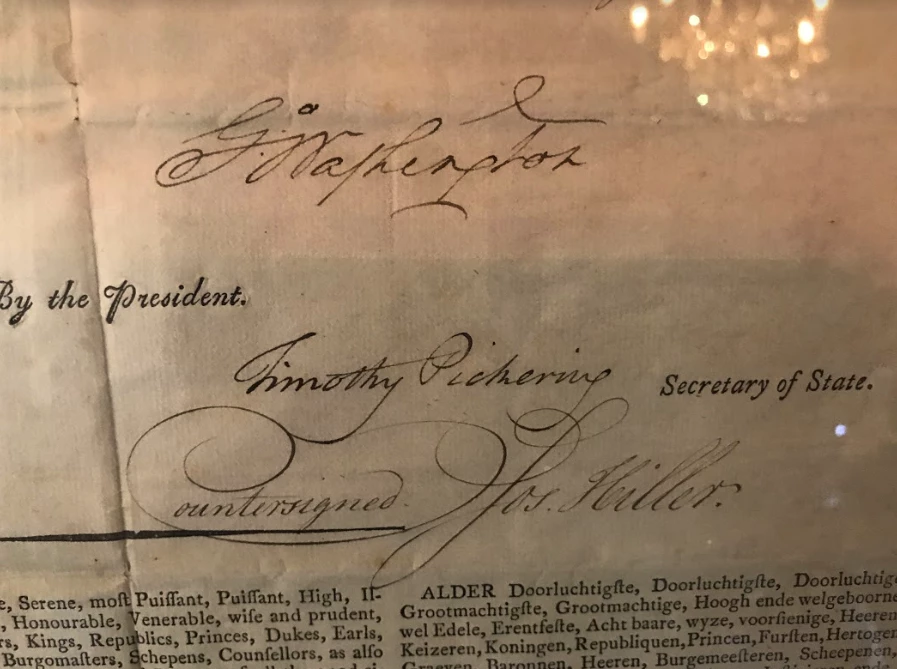 G:Washington
By the President.
Timothy Pickering Secretary of State.
Countersigned. Jos. Hiller.
e, Serene, moſt Puiſſant, Puiſſant, High, Il-
, Honourable, Venerable, wiſe and prudent,
rs, Kings, Republics, Princes, Dukes, Earls,
Burgomaſters, Schepens, Counſellors, as alſo
ALDER Doorluchtigſte, Doorluchtigſte, Doorluchtige
Grootmachtigſte, Grootmachtige, Hoogh ende welgeboorne
wel Edele, Erentfeſte, Acht baare, wyze, voorſienige, Heeren
Keizeren, Koningen, Republiquen, Princen, Furſten, Hertogen
Graeven, Baronnen, Heeren, Burgemeeſteren, Scheepenen,